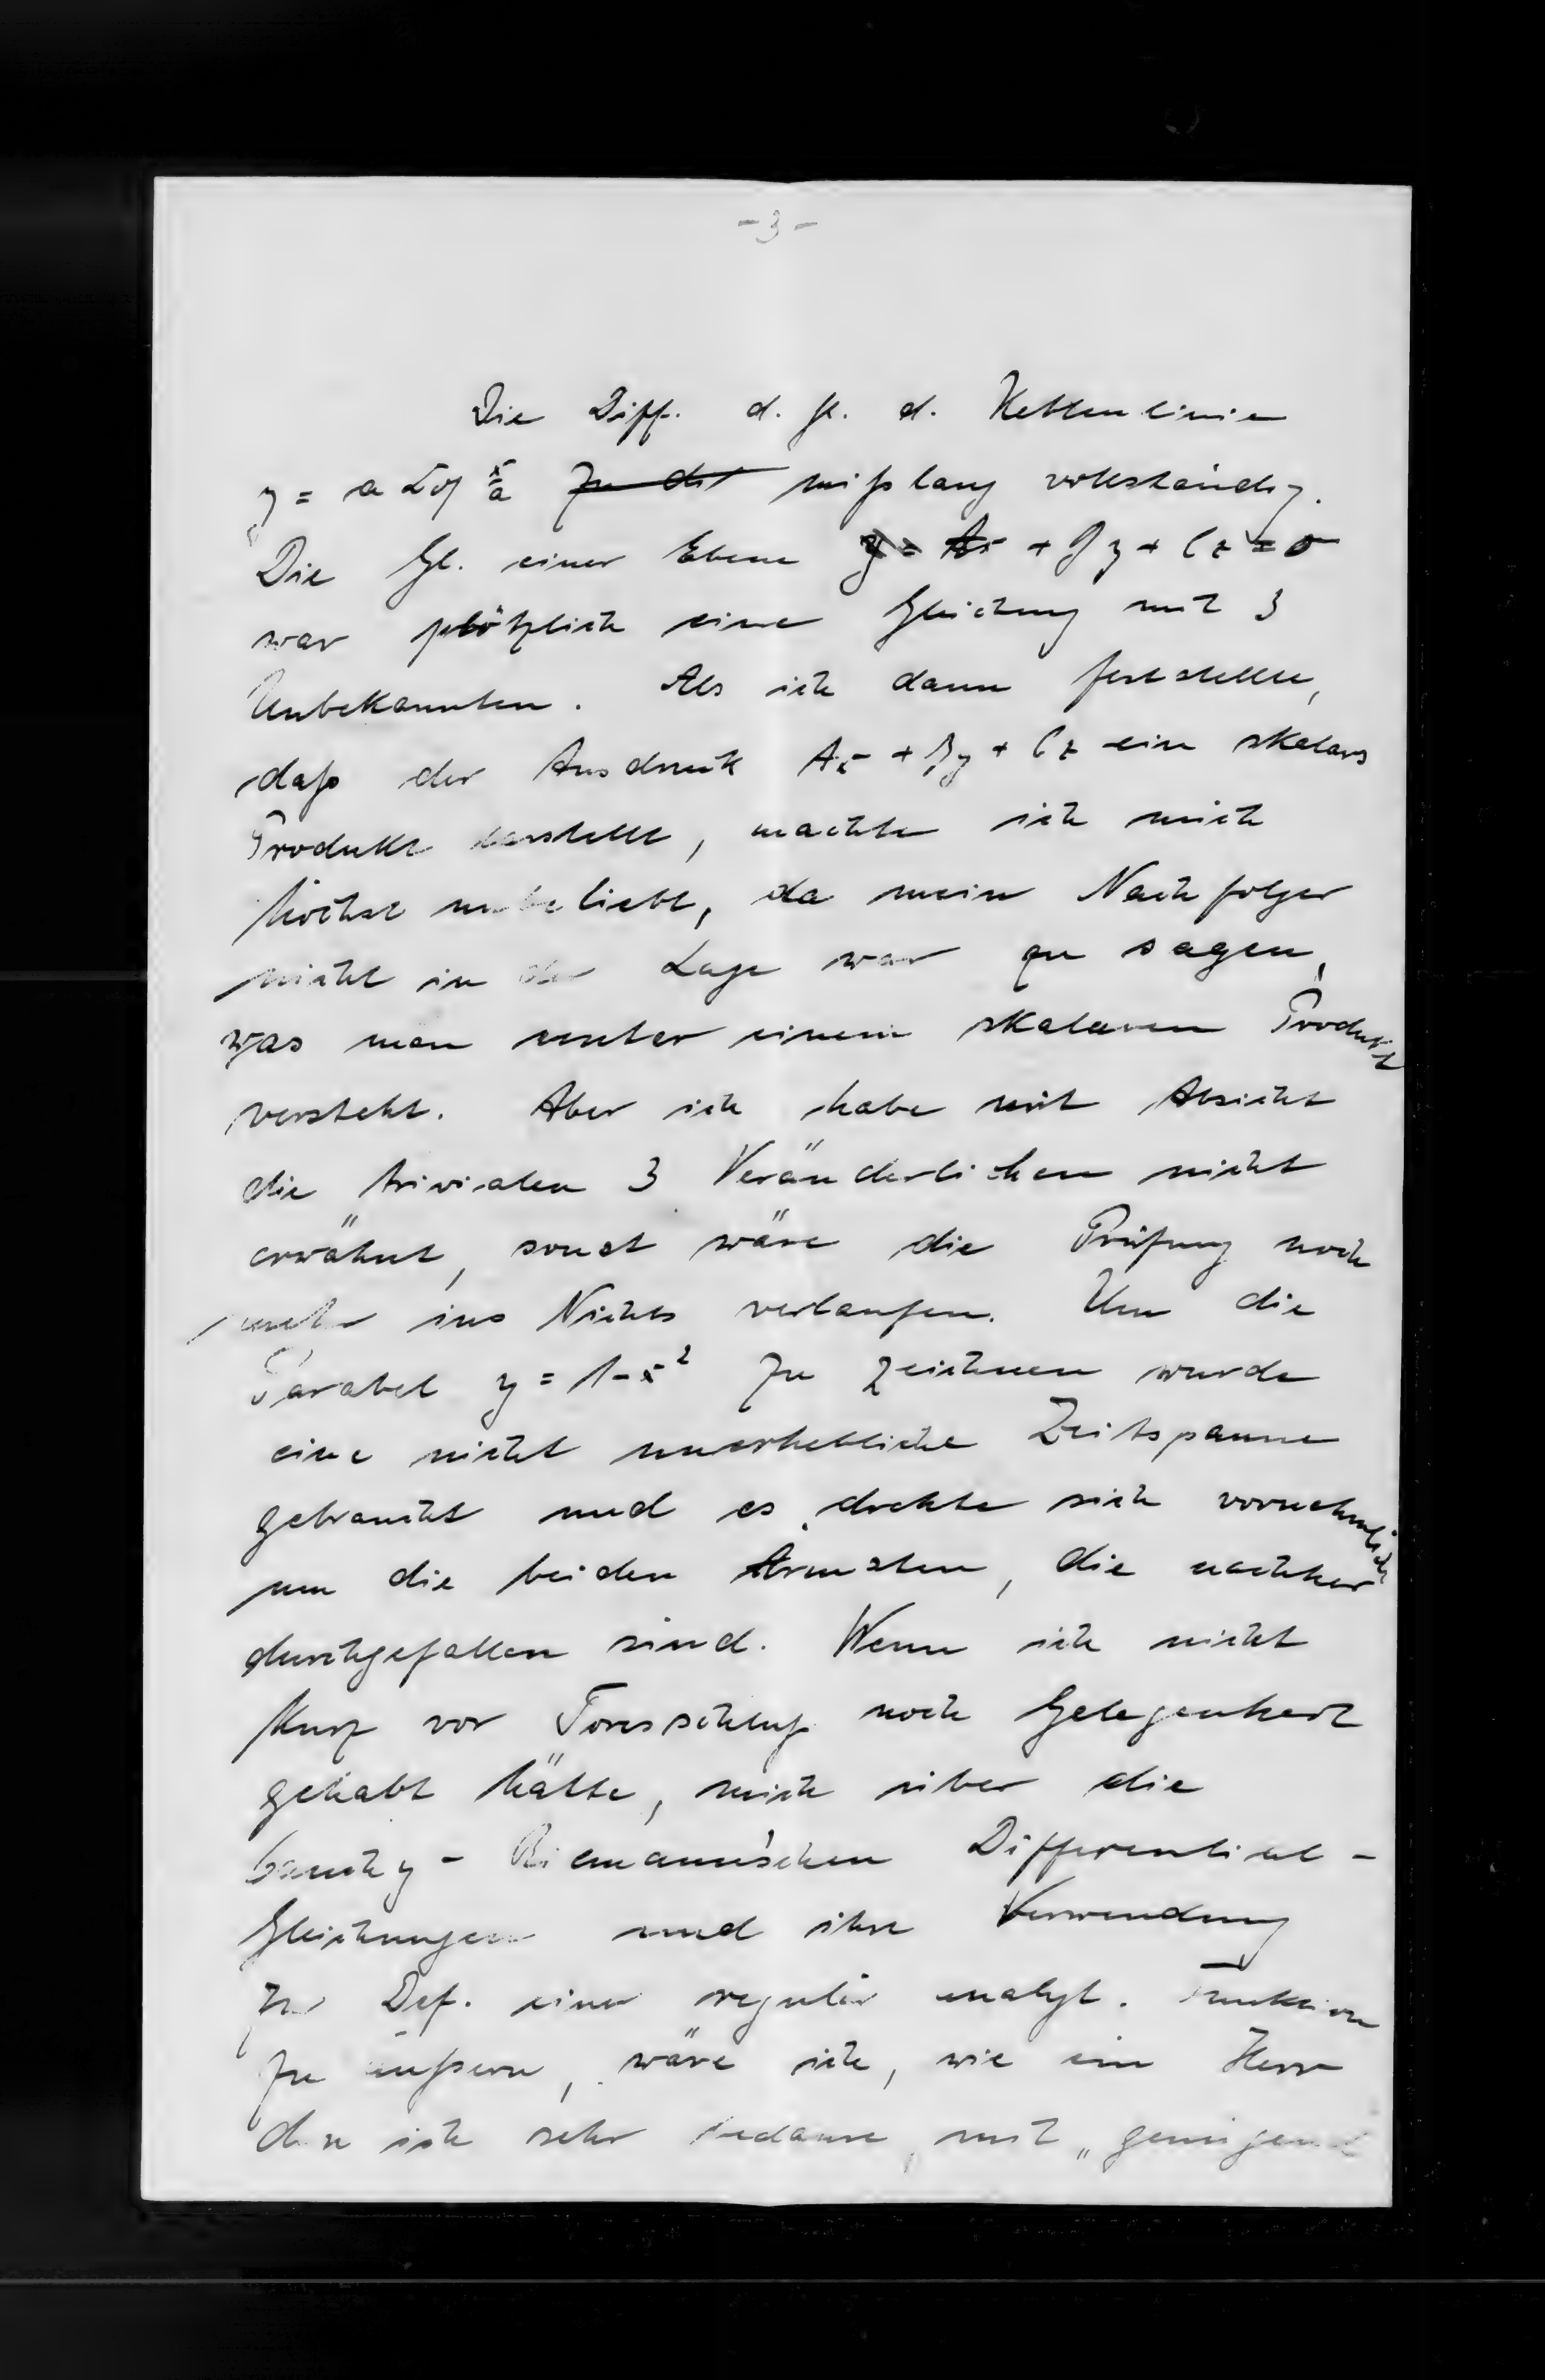 -3-
Die Diff. d. Gl. d. Kettenlinie
y = a Cof x/a mißlang vollständig.
Die Gl. einer Ebene Ax + By + Cz = 0
war plötzlich eine Gleichung mit 3
Unbekannten. Als ich dann feststellte,
daß der Ausdruck Ax + By + Cz ein skalares
Produkt darstellt, machte ich mich
höchst unbeliebt, da mein Nachfolger
nicht in der Lage war zu sagen,
was man unter einem skalaren Produkt
versteht. Aber ich habe mit Absicht
die trivialen 3 Veränderlichen nicht
erwähnt, sonst wäre die Prüfung noch
mehr ins Nichts verlaufen. Um die
Parabel y = 1-x² zu zeichnen wurde
eine nicht unerhebliche Zeitspanne
gebraucht und es drehte sich vornehmlich
um die beiden Ärmsten, die nachher
durchgefallen sind. Wenn ich nicht
kurz vor Toresschluß noch Gelegenheit
gehabt hätte, mich über die
Cauchy - Riemann'schen Differential -
Gleichungen und ihre Verwendung
zur Def. einer regulär analyt. Funktion
zu äußern, wäre ich, wie ein Herr
den ich sehr bedaure, mit „genügend